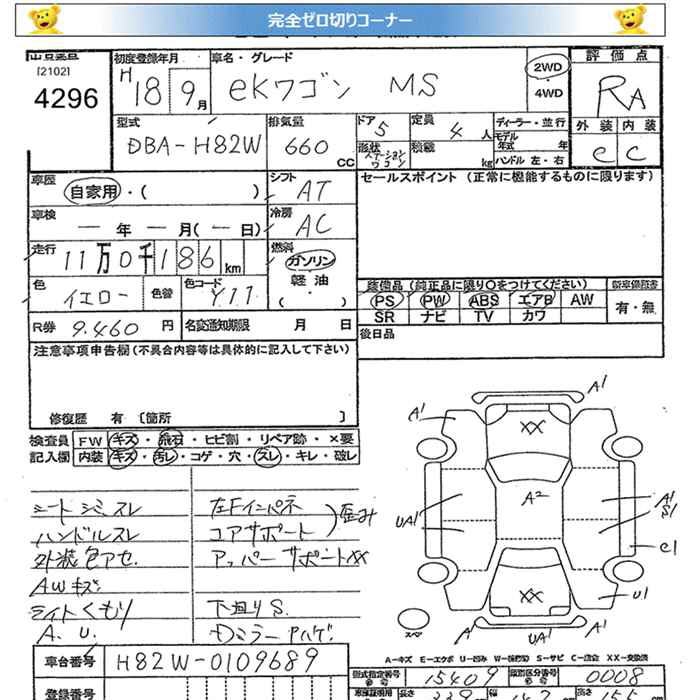 完全ゼロ切りコーナー
[2102]
4296
初度登録年月 H18 9月
車名・グレード
eKワゴン MS
2WD・4WD
評価点
RA
外装 内装
e C
型式
DBA-H82W
排気量
660 CC
ドア 5
形状 ステーションワゴン
定員 4人
積載 kg
ディーラー・並行
モデル年式 年
ハンドル 左・右
車歴
自家用・( )
シフト AT
車検
― 年 ― 月(― 日)
冷房 AC
走行
11万0千186km
燃料
ガソリン
軽油
・( )
色 イエロー 色替
色コード Y11
R券 9.460 円
名変通知期限 月 日
セールスポイント (正常に機能するものに限ります)
装備品 (純正品に限り○をつけてください)
PS PW ABS エアB AW
SR ナビ TV カワ
新車保証書
有・無
後日品
注意事項申告欄(不具合内容等は具体的に記入して下さい)
修復歴 有 [箇所 ]
検査員記入欄
FW キズ・飛石・ヒビ割・リペア跡・×要
内装 キズ・汚レ・コゲ・穴・スレ・キレ・破レ
シートシミ、スレ
ハンドルスレ
外装色アセ.
AWキズ
ライトくもり
A. U.
左Fインパネ
コアサポート
)歪み
アッパーサポートXX
下廻りS.
Dミラー Aハゲ.
A1
A1
XX
UA1
A2
A1
S1
C1
U1
XX
スペア
A1
UA1
A1
A-キズ E-エクボ U-凹み W-補修跡 S-サビ C-腐食 XX-交換済
車台番号 H82W-0109689
登録番号
型式指定番号 15409
類別区分番号 0008
長さ
幅
高さ